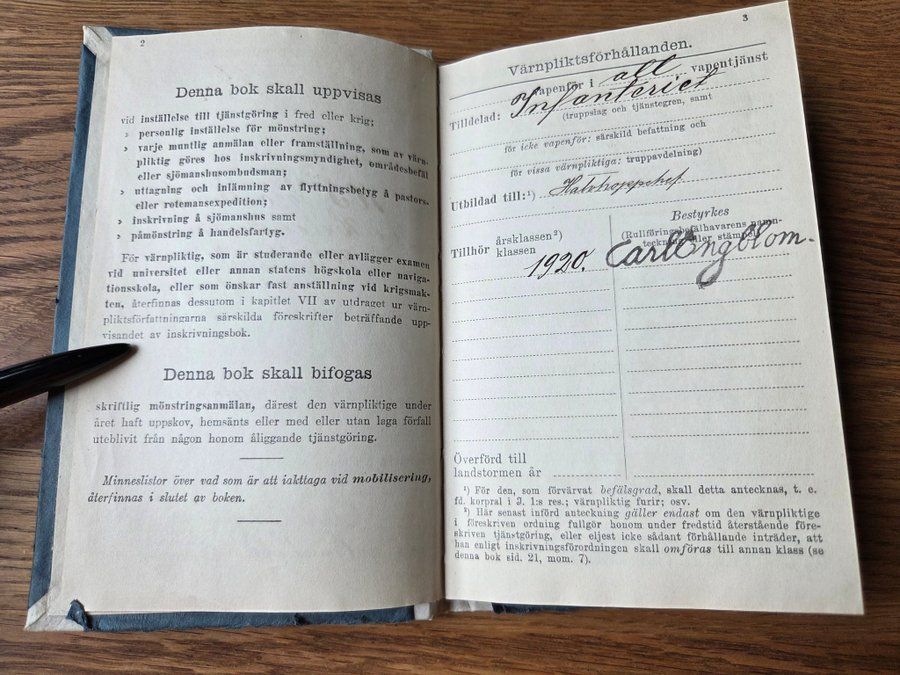 2
Denna bok skall uppvisas
vid inställelse till tjänstgöring i fred eller krig;
» personlig inställelse för mönstring;
» varje muntlig anmälan eller framställning, som av värn-
pliktig göres hos inskrivningsmyndighet, områdesbefäl
eller sjömanshusombudsman;
» uttagning och inlämning av flyttningsbetyg å pastors-
eller rotemansexpedition;
» inskrivning å sjömanshus samt
» påmönstring å handelsfartyg.
För värnpliktig, som är studerande eller avlägger examen
vid universitet eller annan statens högskola eller naviga-
tionsskola, eller som önskar fast anställning vid krigsmak-
ten, återfinnas dessutom i kapitlet VII av utdraget ur värn-
pliktsförfattningarna särskilda föreskrifter beträffande upp-
visandet av inskrivningsbok.
Denna bok skall bifogas
skriftlig mönstringsanmälan, därest den värnpliktige under
året haft uppskov, hemsänts eller med eller utan laga förfall
uteblivit från någon honom åliggande tjänstgöring.
Minneslistor över vad som är att iakttaga vid mobilisering,
återfinnas i slutet av boken.
3
Värnpliktsförhållanden.
Vapenför i all vapentjänst
Tilldelad: Infanteriet
(truppslag och tjänstegren, samt
för icke vapenför: särskild befattning och
för vissa värnpliktiga: truppavdelning)
Utbildad till:¹)
Tillhör årsklassen²)
klassen
1920.
Bestyrkes
(Rullföringsbefälhavarens namn-
teckning eller stämpel)
Carl Engblom.
Överförd till
landstormen år
¹) För den, som förvärvat befälsgrad, skall detta antecknas, t. e.
fd. korpral i J. 1:s res.; värnpliktig furir; osv.
²) Här senast införd anteckning gäller endast om den värnpliktige
i föreskriven ordning fullgör honom under fredstid återstående före-
skriven tjänstgöring, eller eljest icke sådant förhållande inträder, att
han enligt inskrivningsförordningen skall omföras till annan klass (se
denna bok sid. 21, mom. 7).